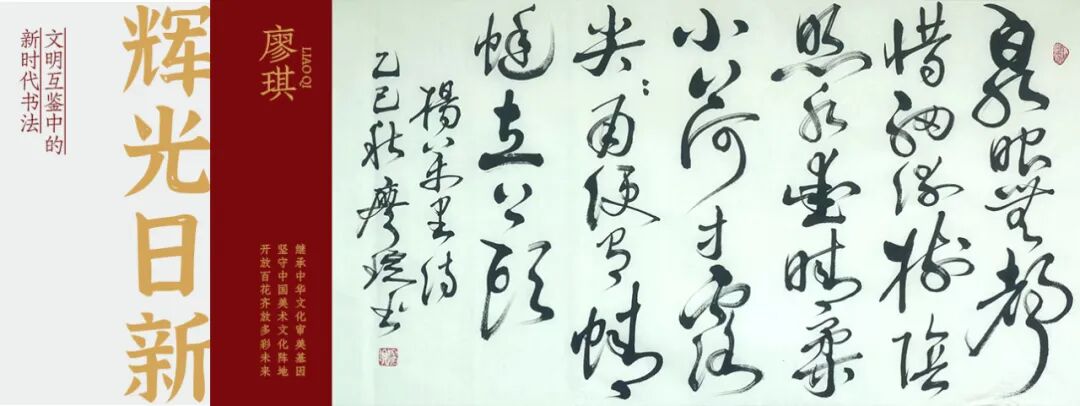 文明互鉴中的
新时代书法
辉光日新
廖琪
LIAO QI
继承中华文化审美基因
坚守中国美术文化阵地
开放百花齐放多彩未来
泉眼無聲
惜細流樹陰
照水愛晴柔
小荷才露
尖〻角便有蜻
蜓立上頭
楊萬里詩
乙巳秋廖琪書